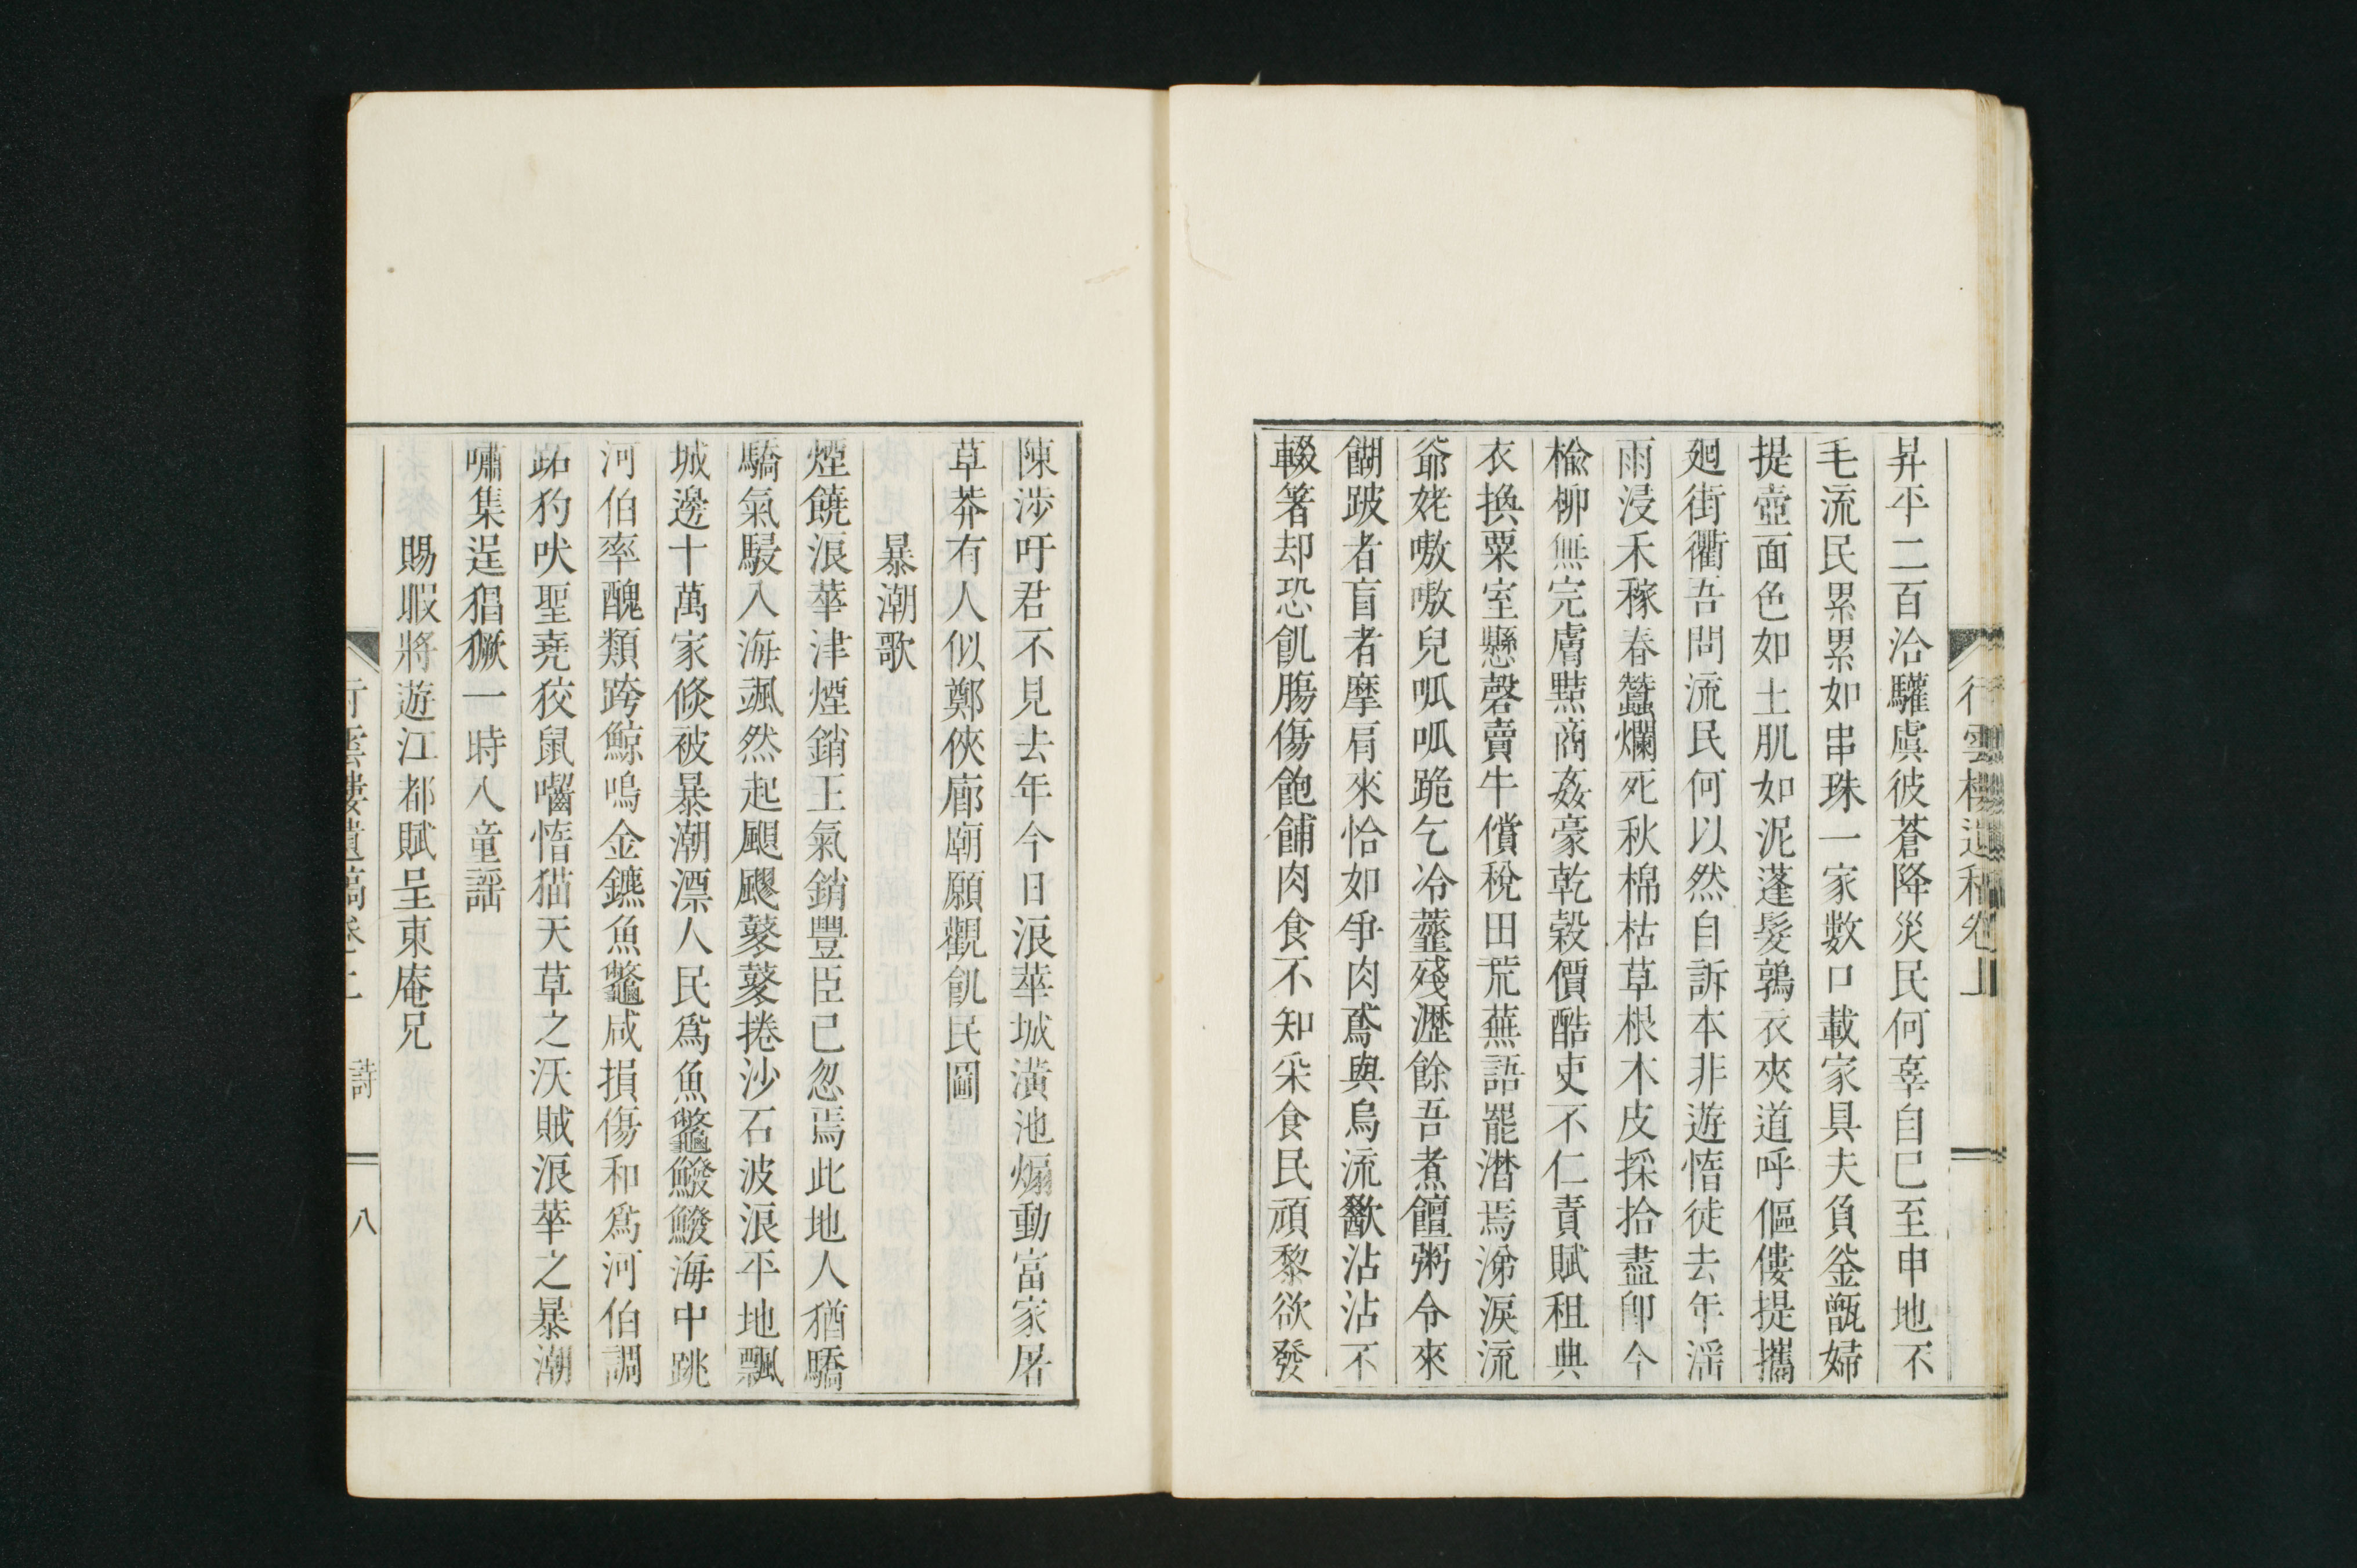 行雲樓遺稿卷上
昇平二百洽驩虞彼蒼降災民何辜自巳至申地不
毛流民累累如串珠一家數口載家具夫負釜甑婦
提壺面色如土肌如泥蓬髮鶉衣夾道呼傴僂提攜
廻街衢吾問流民何以然自訴本非遊惰徒去年淫
雨浸禾稼春蠶爛死秋棉枯草根木皮採拾盡卽今
楡柳無完膚黠商姦豪乾穀價酷吏不仁責賦租典
衣換粟室懸磬賣牛償稅田荒蕪語罷潸焉涕淚流
爺姥嗷嗷兒呱呱跪乞冷虀殘瀝餘吾煮饘粥令來
餬跛者盲者摩肩來恰如爭肉鳶與烏流歠沾沾不
輟箸却恐飢腸傷飽餔肉食不知采食民頑黎欲發
陳涉吁君不見去年今日浪華城潢池煽動富家屠
草莽有人似鄭俠廊廟願觀飢民圖
暴潮歌
煙饒浪華津煙銷王氣銷豐臣已忽焉此地人猶驕
驕氣駸入海颯然起颶飂蔆蔆捲沙石波浪平地飄
城邊十萬家倐被暴潮漂人民爲魚鼈鱍鱍海中跳
河伯率醜類跨鯨鳴金鑣魚鼈咸損傷和爲河伯調
跖狗吠聖堯狡鼠嚙惰猫天草之沃賊浪華之暴潮
嘯集逞猖獗一時入童謠
賜暇將遊江都賦呈東庵兄
行雲樓遺稿卷上 詩 八